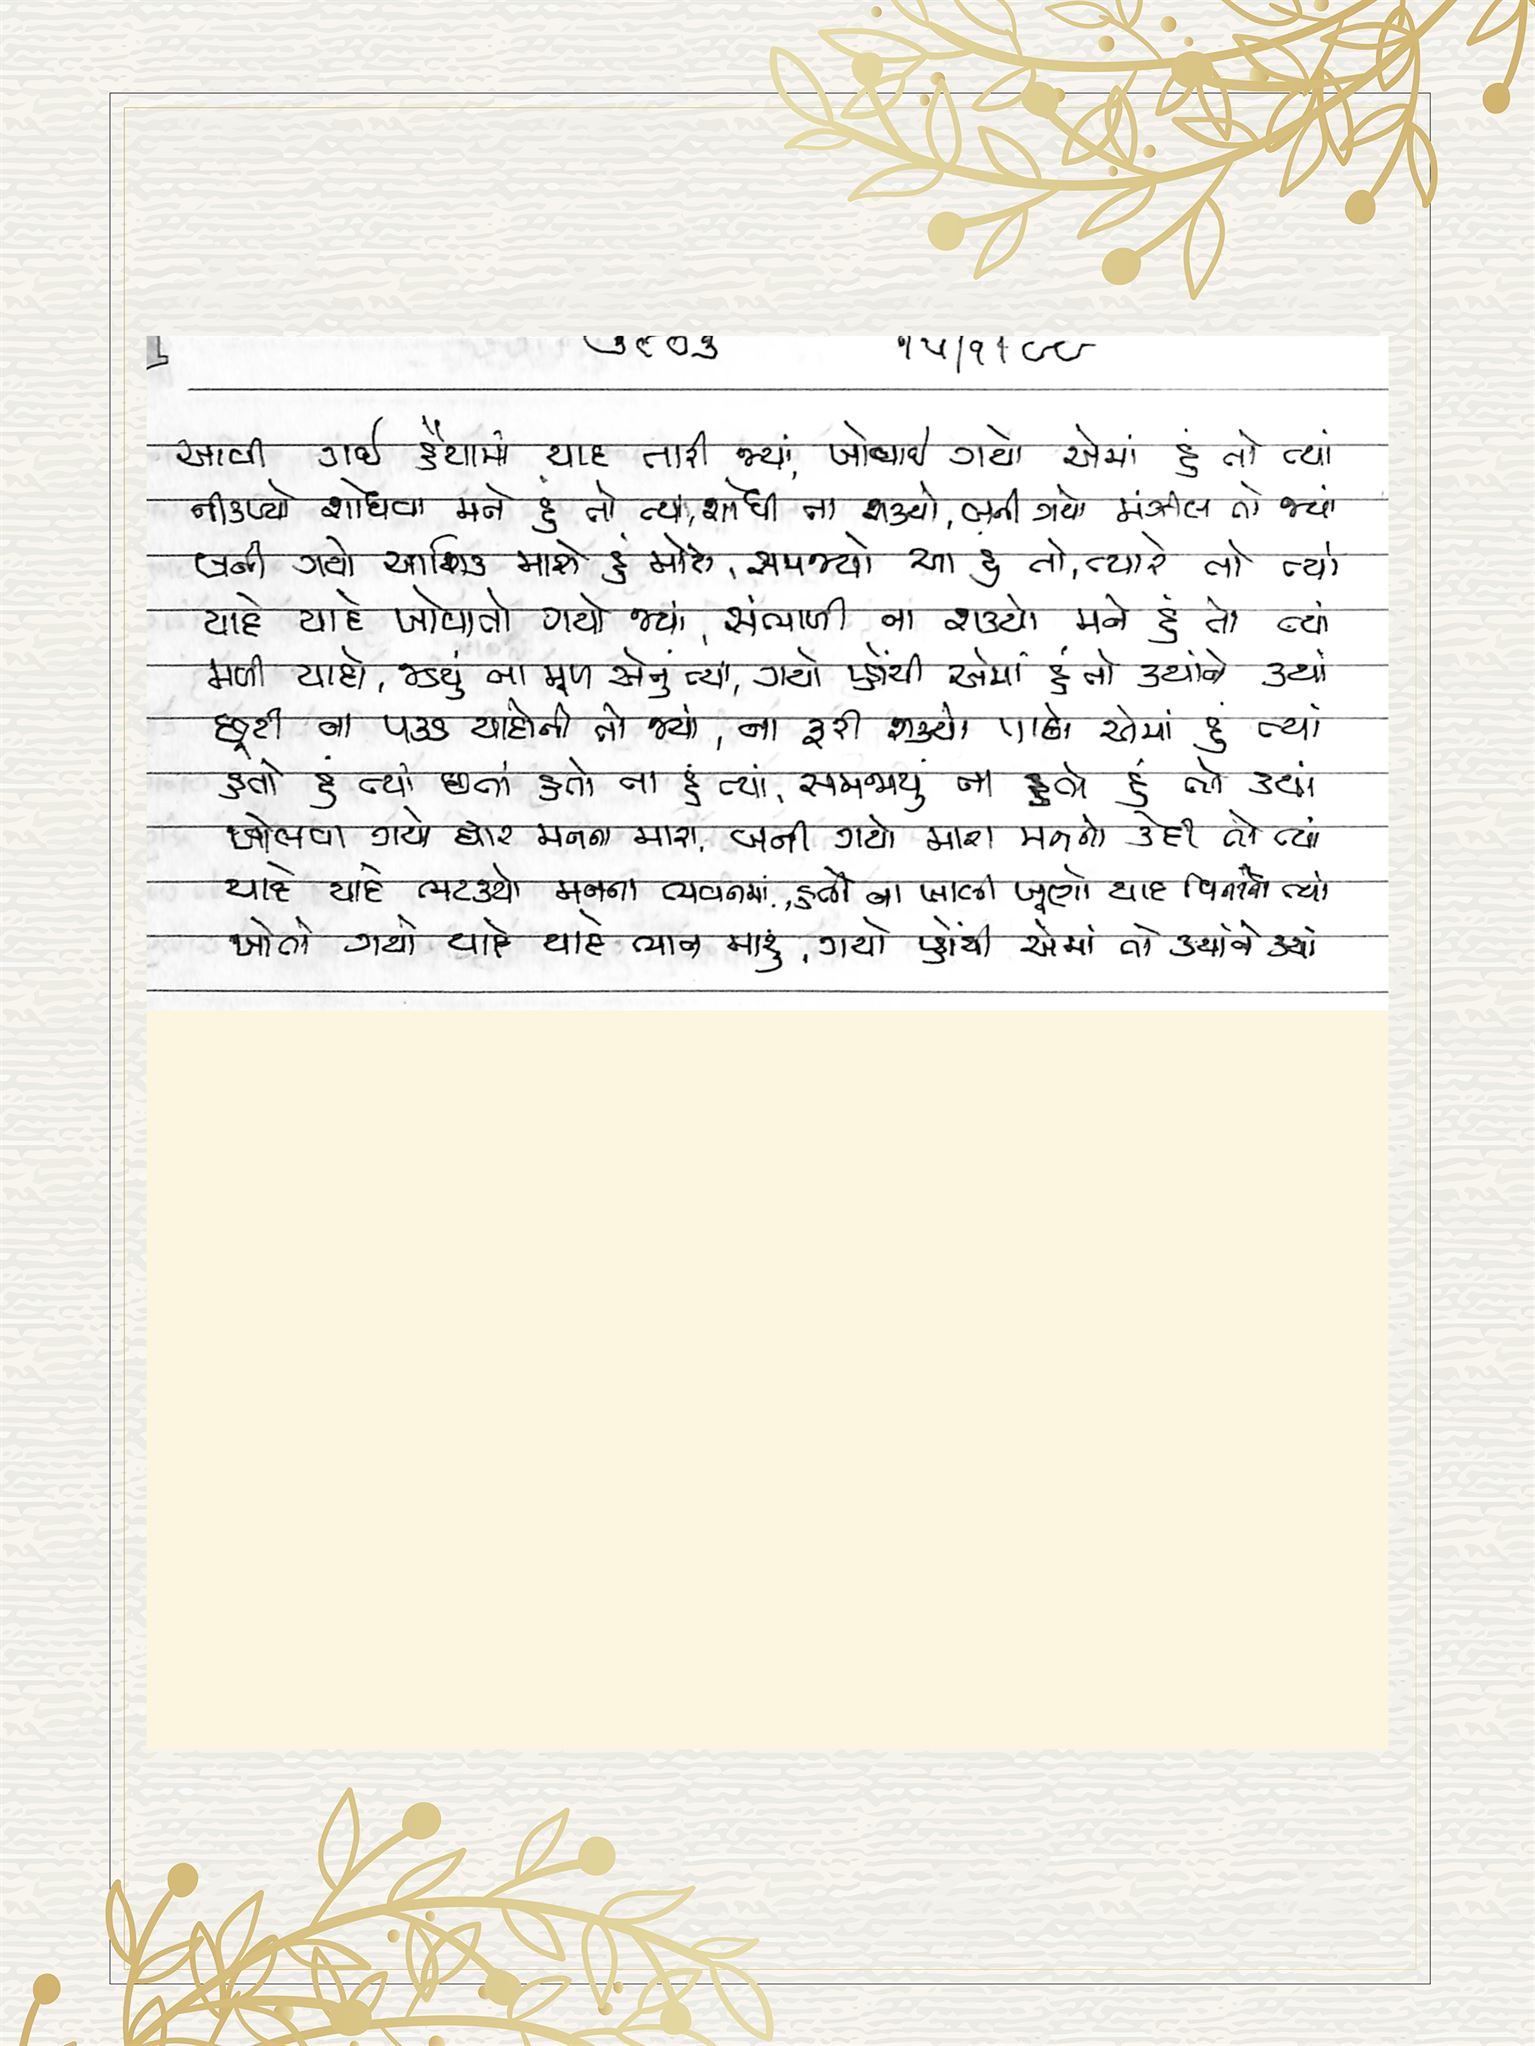 આવી ગઈ હૈયામાં યાદ તારી જ્યાં, ખોવાઈ ગયો એમાં હું તો ત્યાં
નીકળ્યો શોધવા મને હું તો ત્યાં, શોધી ના શક્યો, બની ગયો મંઝીલ તો જ્યાં
બની ગયો આશિક મારો હું મોટો, સમજ્યો આ હું તો, ત્યારે તો ત્યાં
યાદે યાદે ખોવાતો ગયો જ્યાં, સંભાળી ના શક્યો મને હું તો ત્યાં
મળી યાદો, જડયું ના મૂળ એનું ત્યાં, ગયો પ્હોંચી એમાં હું તો ક્યાંને ક્યાં
છૂટી ના પકડ યાદોની તો જ્યાં, ના ફરી શક્યો પાછો એમાં હું ત્યાં
હતો હું ત્યાં છતાં હતો ના હું ત્યાં, સમજાયું ના હતો હું તો ક્યાં
ખોલવા ગયો દ્વાર મનના મારા, બની ગયો મારા મનનો કેદી તો ત્યાં
યાદે યાદે ભટક્યો મનના ભવનમાં, હતો ના ખાલી ખૂણો યાદ વિનાનો ત્યાં
ખોતો ગયો યાદે યાદે ભાન મારું, ગયો પ્હોંચી એમાં તો ક્યાંને ક્યાં